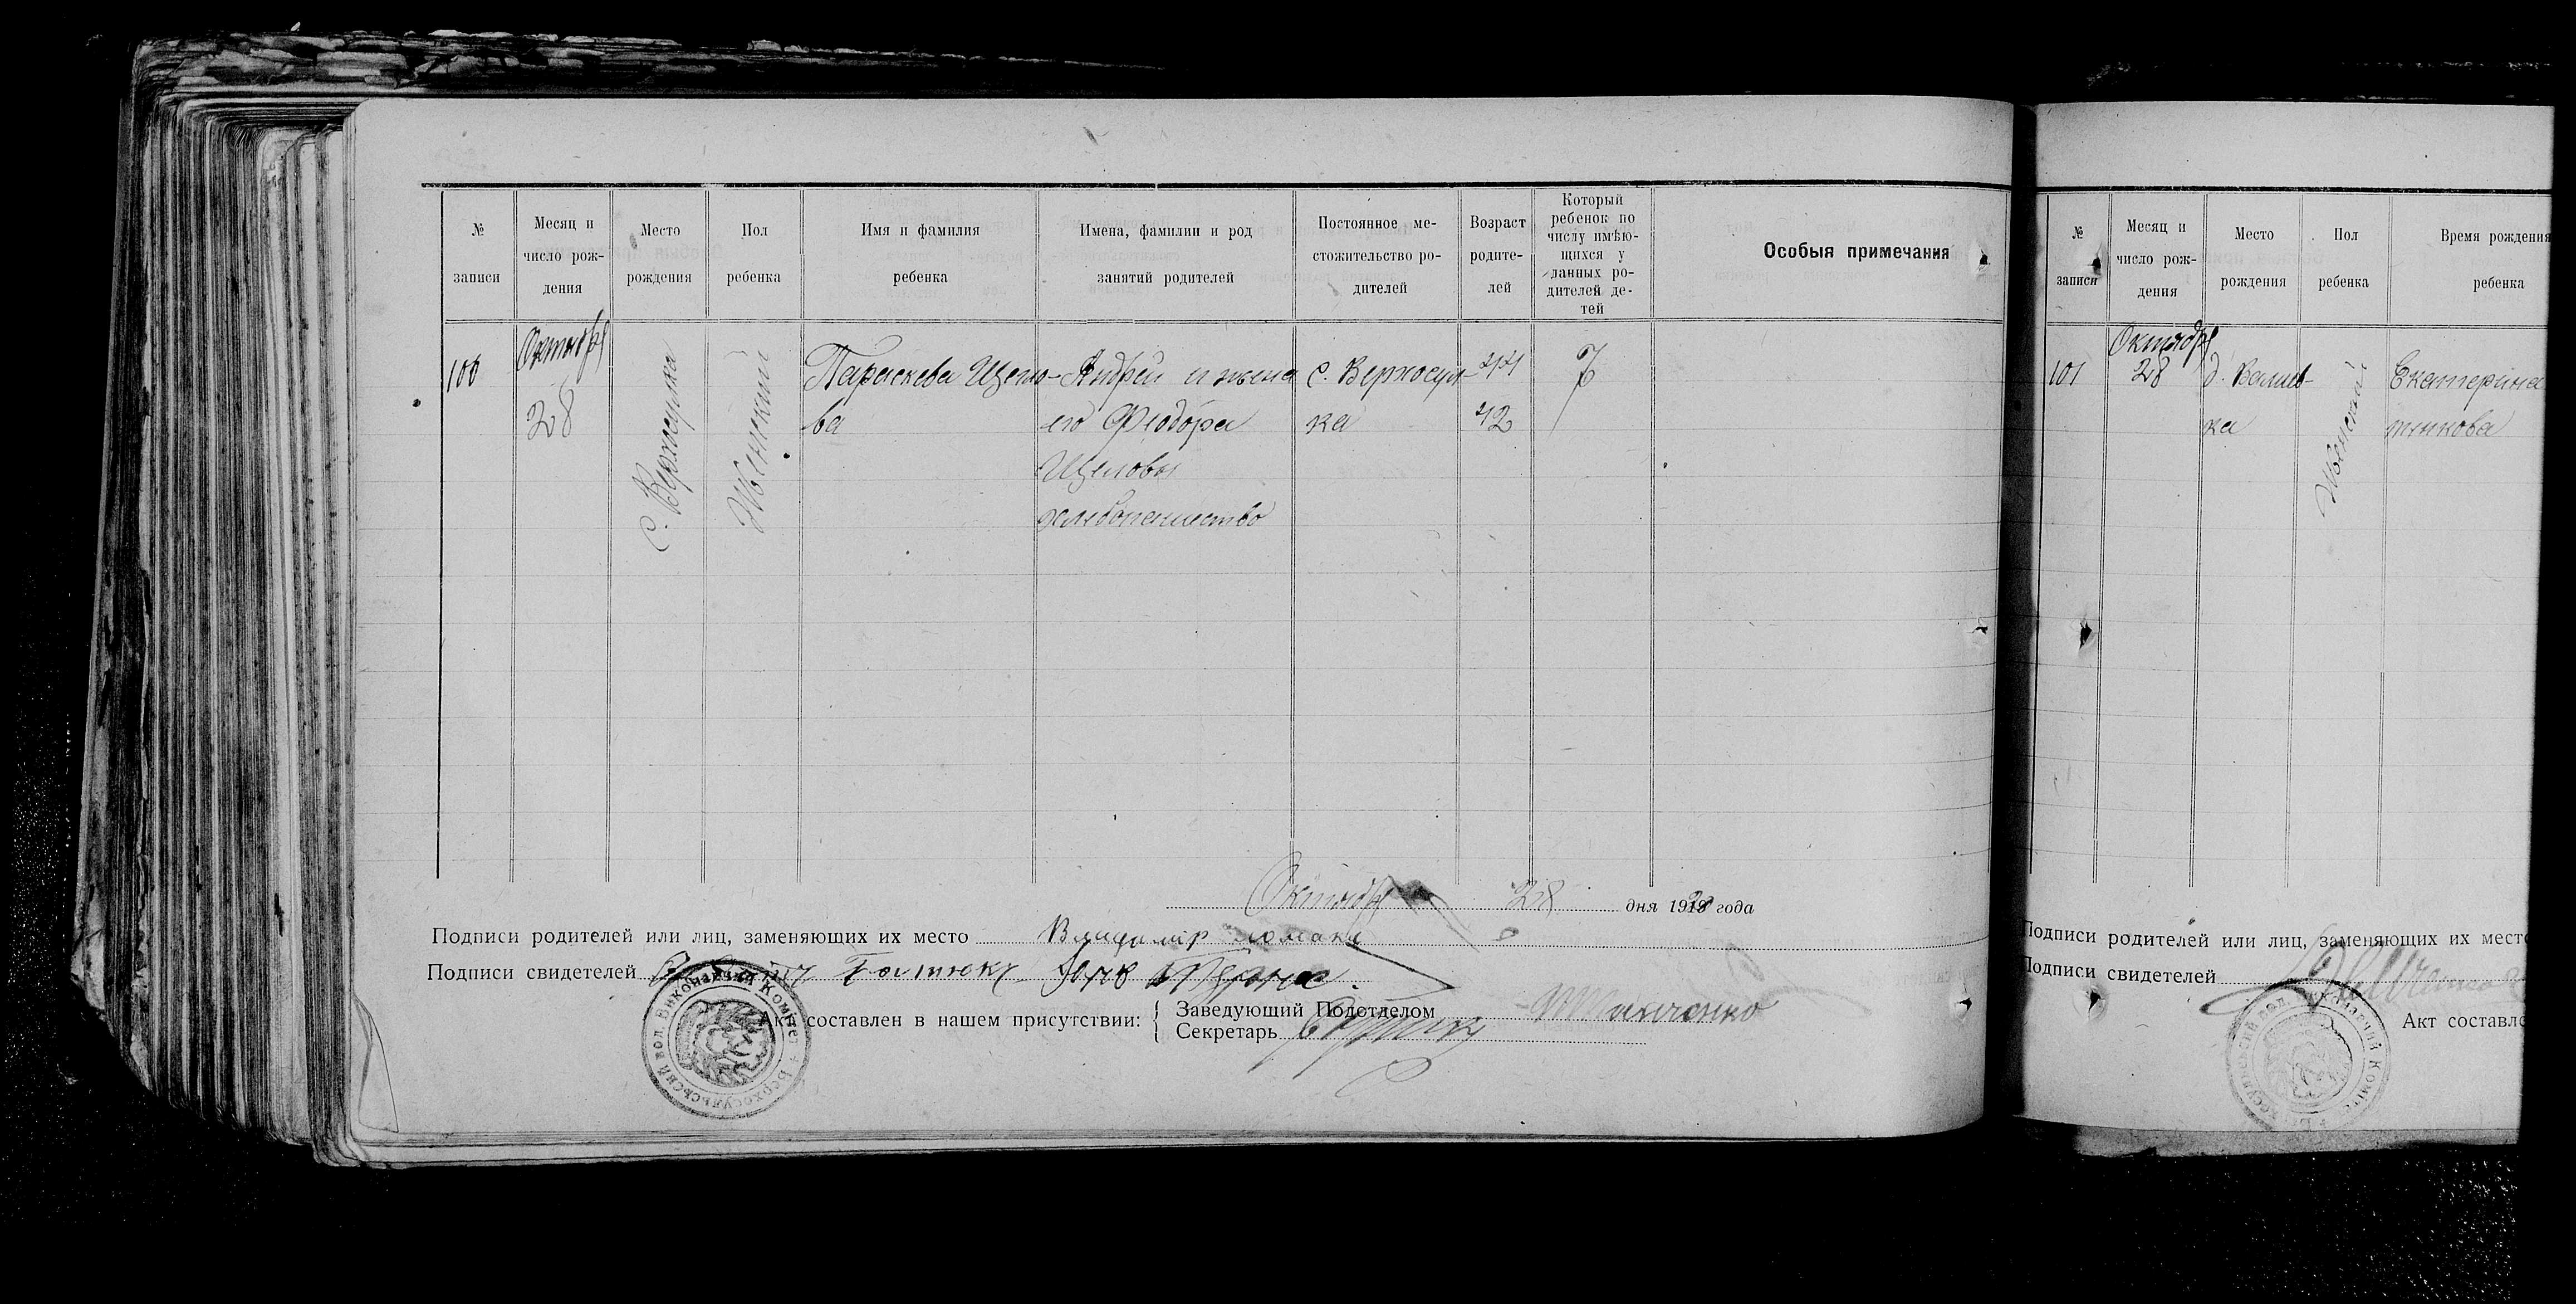 № записи
Месяц и число рож- дения
Место рождения
Пол ребенка
Имя и фамилия ребенка
Имена, фамилии и род занятий родителей
Постоянное ме- стожительство ро- дителей
Возраст родите- лей
Который ребенок по числу имѣю- щихся у данных ро- дителей де- тей
Особыя примечания
100
Октября
28
с. Верхосулка
Женский
Параскева Щело-
ва
Андрей и жена
его Феодора
Щеловы
хлебопашество
с. Верхосул-
ка
44
42
7
Октября 28 дня 1920 года
Подписи родителей или лиц, заменяющих их место Владимір
Подписи свидетелей
Акт составлен в нашем присутствии:
Заведующий Подотделом
Секретарь
Верхосульський вол. Виконавчий Комітет
№ записи
Месяц и число рож- дения
Место рождения
Пол ребенка
Время рождения
ребенка
101
Октября
28
д. Валиев-
ка
Женский
Екатерина
тникова
Подписи родителей или лиц, заменяющих их место
Подписи свидетелей
Акт составле